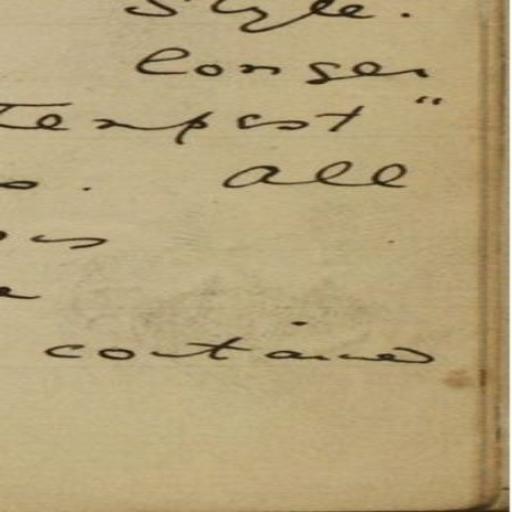 style.
longer
Tempest"
. all
contained